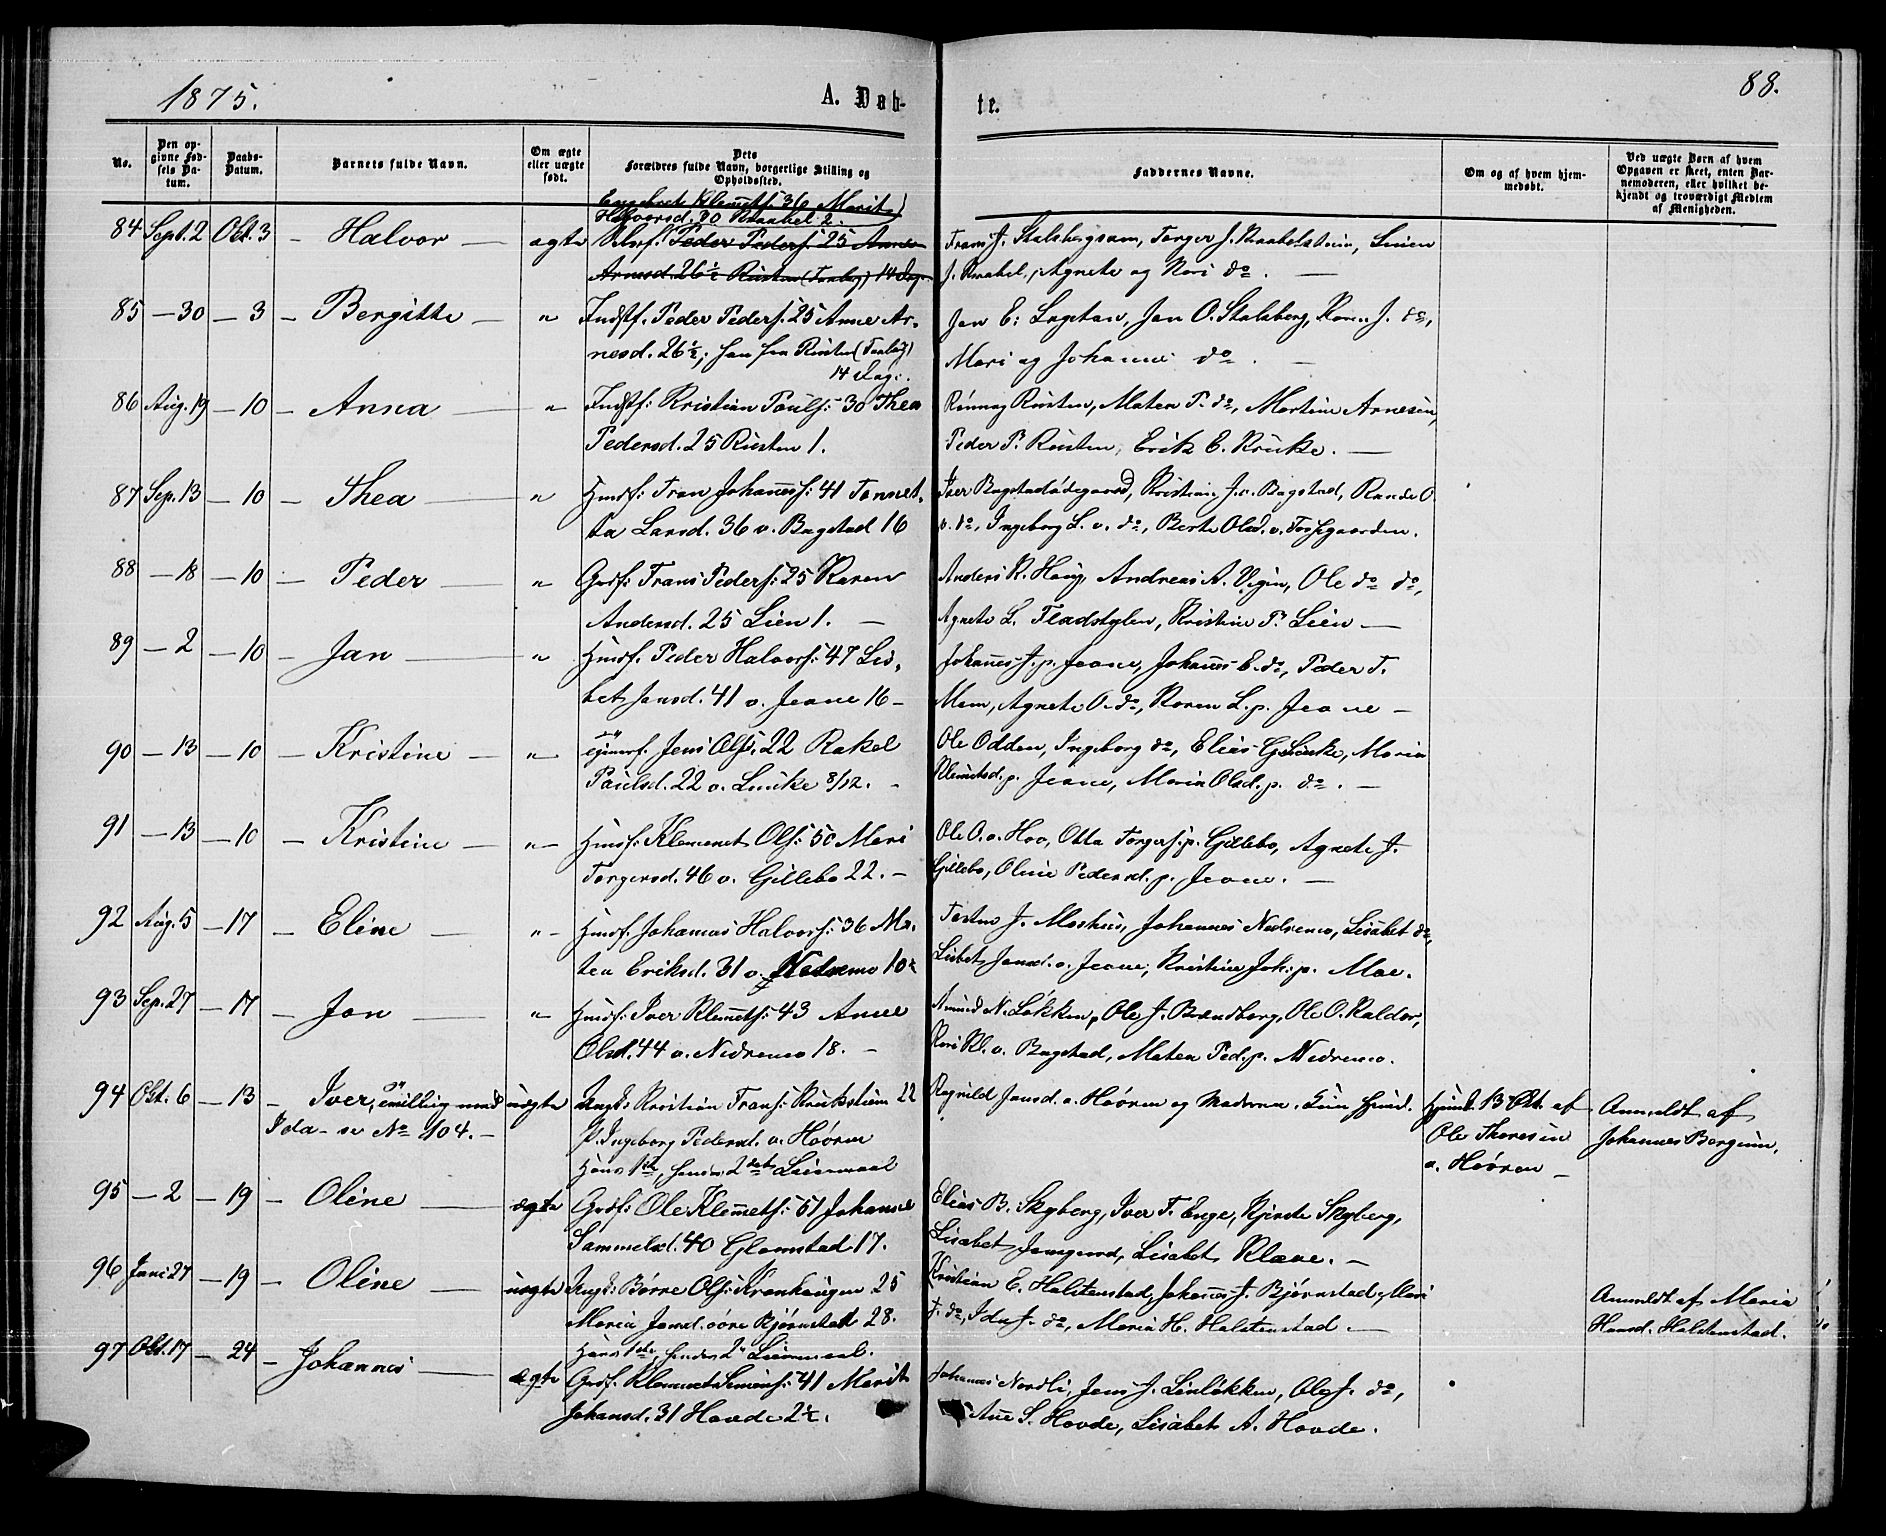 1875.
A. Døb-
te.
88.
No.
Den op-
givne Fød-
sels Da-
tum.
Daabs-
Datum.
Barnets fulde Navn.
Om ægte
eller uægte
født.
Dets
Forældres fulde Navn, borgerlige Stilling og
Opholdssted.
Faddernes Navne.
Om og af hvem hjem-
medøbt.
Ved uægte Børn af hvem
Opgaven er skeet, enten Bar-
nemoderen, eller hvilket be-
kjendt og troværdigt Medlem
af Menigheden.
Engebret Klemets: 36 Marit
Halvorsd. 30 Kraabel 2.
84 Sept. 2 Okt. 3 - Halvor — ægte Peder Peders: 25 Anne
Arnesd. 26½ Rusten (Faaberg) 14 Dag.
Frans J. Stalsbergsveen, Torger J. Kraabelsteien,
J. Kraabel, Agnete og Kari do. —
85 — 30 — 3 — Bergitte — " Indstf. Peder Peders: 25 Anne Ar-
nesd. 26½, fra Rusten (Faaberg)
14 Dag.
Jan E: Lygstan, Jan O. Stalsberg, Karen J. do,
Mari og Johanne do. —
86 Aug. 19 — 10 — Anna — " Indstf: Kristian Pouls: 30 Thea
Pedersd. 25 Rusten 1.
Rønnaug Rusten, Maten P. do, Martine Arnesen,
Peder P. Rusten, Erik E. Kruke. —
87 Sep. 13 — 10 — Thea — " Husf: Fran Johañess: 41 Tonnet-
ta Larsd. 36 v. Bagstad 16
Iver Bagstadødegaard, Kristine J. v. Bagstad, Rande O.
v. do, Ingeborg L. v. do, Berte Olsd. v. Forsgaarden.
88 — 18 — 10 — Peder — " Grdf: Frans Peders: 25 Karen
Andersd. 25 Lien 1. —
Anders R. Haug, Andreas A. Vigen, Ole do do,
Agnete L. Fladstylen, Kristine P. Lien —
89 — 2 — 10 — Jan — " Husf. Peder Halvors: 47 Lis-
bet Jansd. 41 v. Jevne 16 —
Johañes J. p. Jevne, Johañes E. do, Peder T.
Moen, Agnete O. do, Karen L. p. Jevne —
90 — 13 — 10 — Kristine — " Husmf. Jens Ols: 22 Rakel
Paulsd. 22 v. Linke 8/12. —
Ole Odden, Ingeborg do, Elias G. Linke, Maria
Klemetsd. p. Jevne, Maria Olsd. p. do. —
91 — 13 — 10 — Kristine — " Husf: Klemmet Ols: 50 Mari
Torgersd. 46 v. Gillebo 22. —
Ole O. v. Hov, Otta Torgers: p. Gillebo, Agnete J.
Gillebo, Oline Pedersd. p. Jevne. —
92 Aug. 5 — 17 — Eline — " Husf. Johannes Halvors: 36 Ma-
tea Eriksd. 31 v. Nedremo 10½
Torsten J. Moshus, Johannes Nedremo, Lisabet do,
Lisbet Jansd. v. Jevne, Kristine Joh: p. Moe.
93 Sep. 27 — 17 — Jan — " Husf: Iver Klemets: 43 Anne
Olsd. 44 v. Nedremo 18. —
Amund N. Løkken, Ole J. Brandborg, Ole O. Kaldor,
Kari Kl. v. Bagstad, Maten Ped. p. Nedremo.
94 Okt. 6 — 13 — Iver, tvilling med uægte Ungk: Kristian Frans: Krukstuen 22
Ida — se No 104. — P. Ingeborg Pedersd. v. Høøren
Hans 1ste, hendes 2det Leiermaal
Ragnild Jansd. v. Høøren og Moderen.
Hjemd. 13 Okt. af
Ole Thoresen
v. Høøren —
Anmeldt af
Johannes Bergum.
95 — 2 — 19 — Oline — ægte Grdf: Ole Klemets: 51 Johanne
Sammelsd. 40 Glomstad 17.
Elias B. Skyberg, Iver T. Enge, Kjersti Skyberg,
Lisabet Jansgaard, Lisabet Klæve. —
96 Juni 27 — 19 — Oline — uægte Ungk: Børre Ols: Kranhaugen 25
Maria Jansd. øvre Bjørnstad 28.
Hans 1ste, hendes 2det Leiermaal.
Kristian E. Halstenstad, Johañes J. Bjørnstad, Mari
F. do, Ida J. do, Maria H. Halstenstad. —
Anmeldt af Maria
Hansd. Halstenstad.
97 Okt. 17 — 24 — Johannes — ægte Grdf. Klemmet Simens: 41 Marit
Johansd. 31 Hovde 2½.
Johannes Nordli, Jens J. Linløkken, Ole J. do,
Añe S. Hovde, Lisabet A. Hovde.